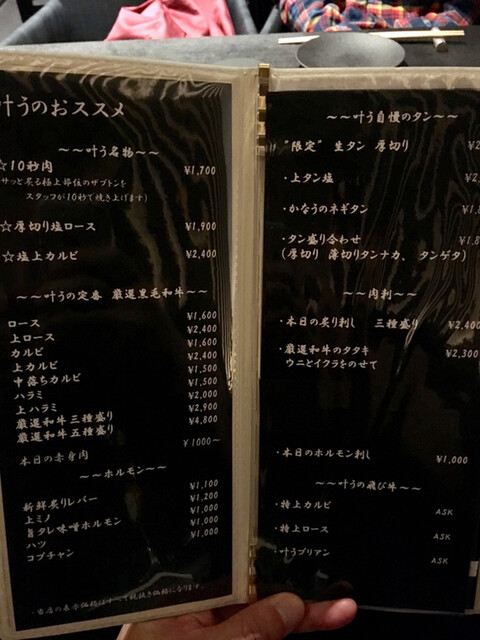 叶うのおススメ
～～叶う名物～～
☆10秒肉 ¥1,700
(サッと炙る極上部位のザブトンを
スタッフが10秒で焼き上げます)
☆厚切り塩ロース ¥1,900
☆塩上カルビ ¥2,400
～～叶うの定番 厳選黒毛和牛～～
ロース ¥1,600
上ロース ¥2,400
カルビ ¥1,600
上カルビ ¥2,400
中落ちカルビ ¥1,500
ハラミ ¥1,500
上ハラミ ¥2,000
厳選和牛三種盛り ¥2,900
厳選和牛五種盛り ¥4,800
本日の赤身肉 ¥1000～
～～ホルモン～～
新鮮炙りレバー ¥1,100
上ミノ ¥1,200
旨タレ味噌ホルモン ¥1,000
ハツ ¥1,000
コプチャン ¥1,000
・当店の表示価格はすべて税抜き価格になります。
～～叶う自慢のタン～～
"限定" 生タン 厚切り
・上タン塩
・かなうのネギタン
・タン盛り合わせ
(厚切り 薄切りタンナカ、 タンゲタ)
～～肉刺～～
・本日の炙り刺し 三種盛り ¥2,400
・厳選和牛のタタキ ¥2,300
ウニとイクラをのせて
・本日のホルモン刺し ¥1,000
～～叶うの飛び牛～～
・特上カルビ ASK
・特上ロース ASK
・叶うブリアン ASK